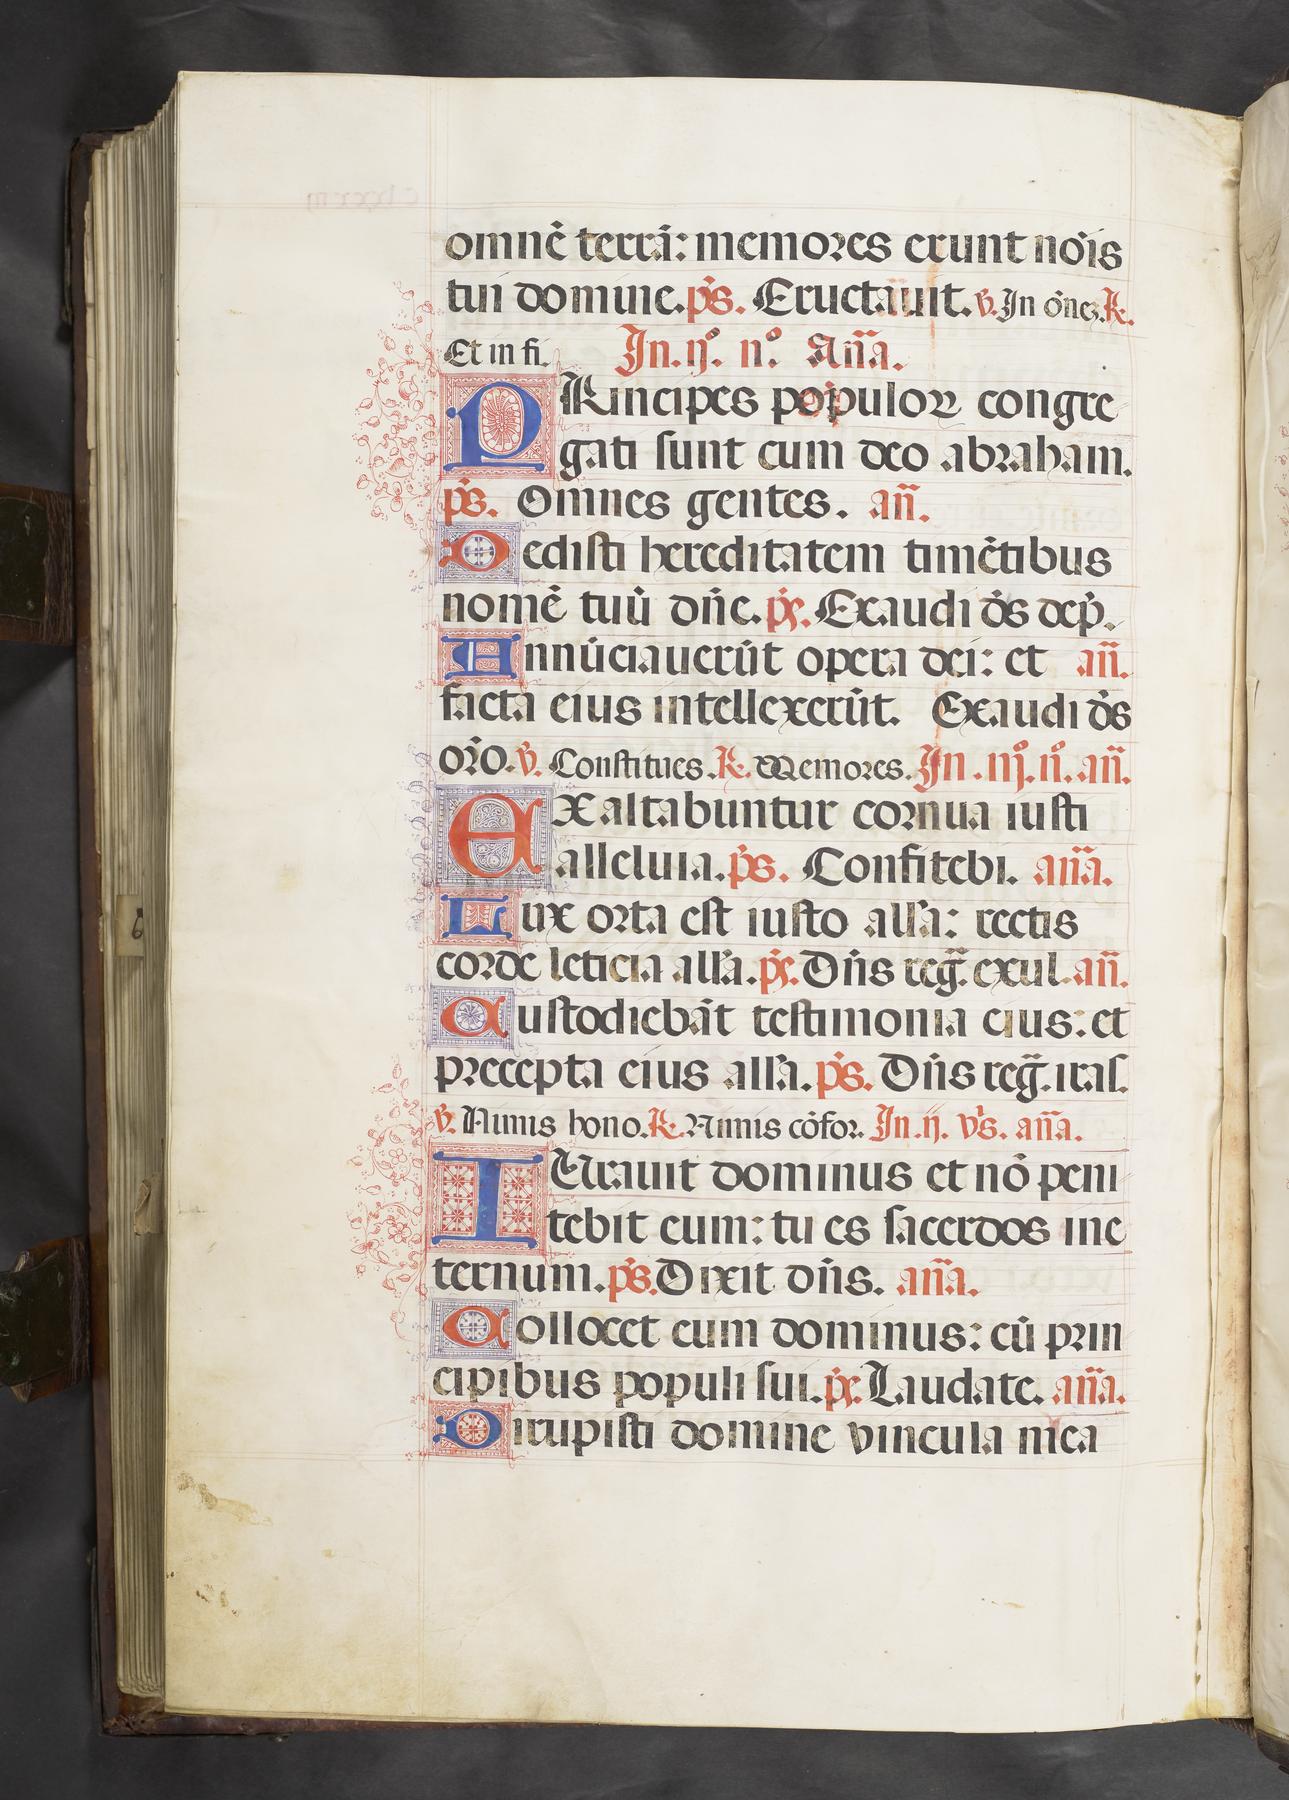 omnē terrā: memores erunt nōis
tui domine. ps̄. Eructauit. v̄. In ōnez. R.
Et in fi. In. ij°. n°. Aña.
PRincipes populoꝝ congre
gati sunt cum deo abraham.
ps̄. Omnes gentes. añ.
Dedisti hereditatem timētibus
nomē tuū dñe. ps̄. Exaudi d̄s dep̄.
Annūciauerūt opera dei: et añ.
facta eius intellexerūt. Exaudi d̄s
orō. v̄. Constitues. R. Memores. In. iij°. n°. añ.
EXaltabuntur cornua iusti
alleluia. ps̄. Confitebi. aña.
Lux orta est iusto alla: rectis
corde leticia alla. ps̄. Dñs reg̃. exul. añ.
Custodiebāt testimonia eius: et
precepta eius alla. ps̄. Dñs reg̃. iras.
v̄. Nimis hono. R. Nimis cōfor. In. ij. vs̄. aña.
IUrauit dominus et nō peni
tebit eum: tu es sacerdos ine
ternum. ps̄. Dixit dñs. aña.
Collocet eum dominus: cū prin
cipibus populi sui. ps̄. Laudate. aña.
Dirupisti domine vincula mea
6